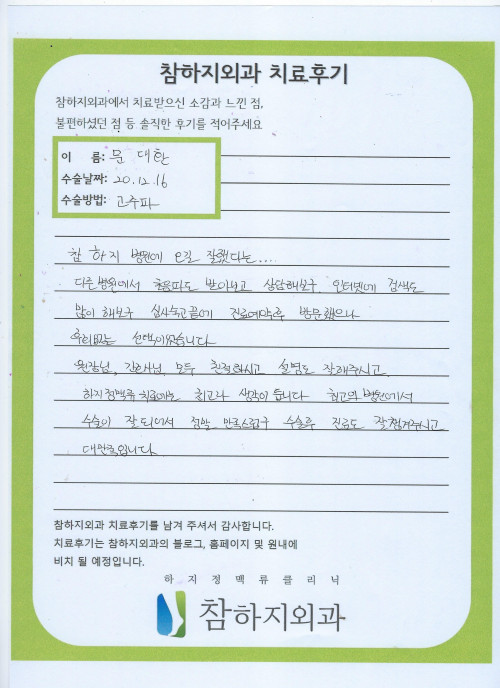 참하지외과 치료후기
참하지외과에서 치료받으신 소감과 느낀 점,
불편하셨던 점 등 솔직한 후기를 적어주세요
이 름: 문 대한
수술날짜: 20.12.16
수술방법: 고주파
참 하지 병원에 오길 잘했다는...
다른병원에서 초음파도 받아보고 상담해보구 인터넷에 검색도
많이 해보구 심사숙고끝에 진료예약후 방문했으나
후회없는 선택이었습니다
원장님, 간호사님, 모두 친절하시고 설명도 잘해주시고
하지정맥류 치료에는 최고라 생각이 듭니다 최고의 병원에서
수술이 잘되어서 정말 만족스럽구 수술후 진료도 잘챙겨주시고
대만족입니다
참하지외과 치료후기를 남겨 주셔서 감사합니다.
치료후기는 참하지외과의 블로그, 홈페이지 및 원내에
비치 될 예정입니다.
하 지 정 맥 류 클 리 닉
참하지외과